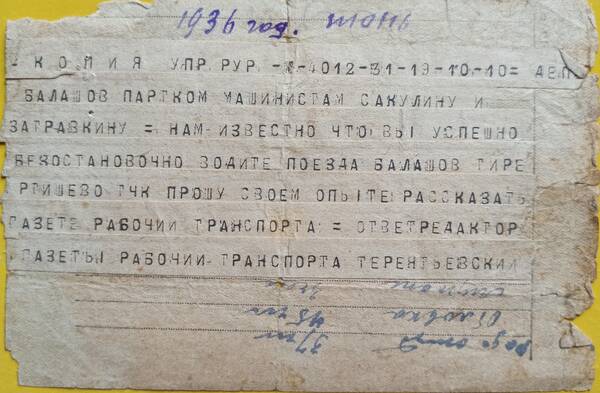 1936 год. июнь
- КОМИЯ УПР.РУР -Т-4012-31-19-10-10= ДЕП
БАЛАШОВ ПАРТКОМ МАШИНИСТАМ САКУЛИНУ И
ЗАТРАВКИНУ = НАМ ИЗВЕСТНО ЧТО ВЫ УСПЕШНО
БЕЗОСТАНОВОЧНО ВОДИТЕ ПОЕЗДА БАЛАШОВ ТИРЕ
РТИШЕВО ТЧК ПРОШУ СВОЕМ ОПЫТЕ РАССКАЗАТЬ
ГАЗЕТЕ РАБОЧИИ ТРАНСПОРТА = ОТВЕТРЕДАКТОР
ГАЗЕТЫ РАБОЧИИ ТРАНСПОРТА ТЕРЕНТЬЕВСКИИ